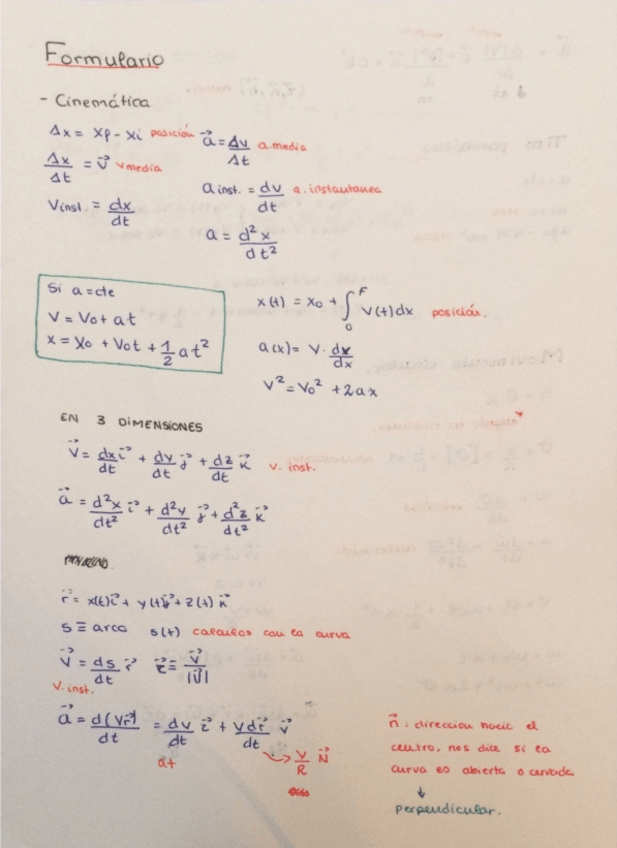 Formulario
- Cinemática
Δx = xp - xi posición
Δx/Δt = v⃗ v media
Vinst. = dx/dt
a⃗ = Δv/Δt a.media
a inst. = dv/dt a. instantanea
a = d²x/dt²
Si a = cte
V = Vo + at
x = xo + Vot + 1/2 at²
x(t) = xo + ∫₀F v(t)dx posición.
a(x) = V · dx/dx
V² = Vo² + 2ax
EN 3 DIMENSIONES
v⃗ = dx/dt i⃗ + dy/dt j⃗ + dz/dt k⃗ v. inst.
a⃗ = d²x/dt² i⃗ + d²y/dt² j⃗ + d²z/dt² k⃗
r⃗ = x(t)i⃗ + y(t)j⃗ + z(t) k⃗
s ≡ arco s(t) calculos con la curva
v⃗ = ds/dt
v⃗/|v⃗|
v. inst.
a⃗ = = dv/dt
at
v/R N⃗
n⃗ : direccion hacic el
centro, nos dice si la
curva es abierta o cerrada
↓
perpendicular.